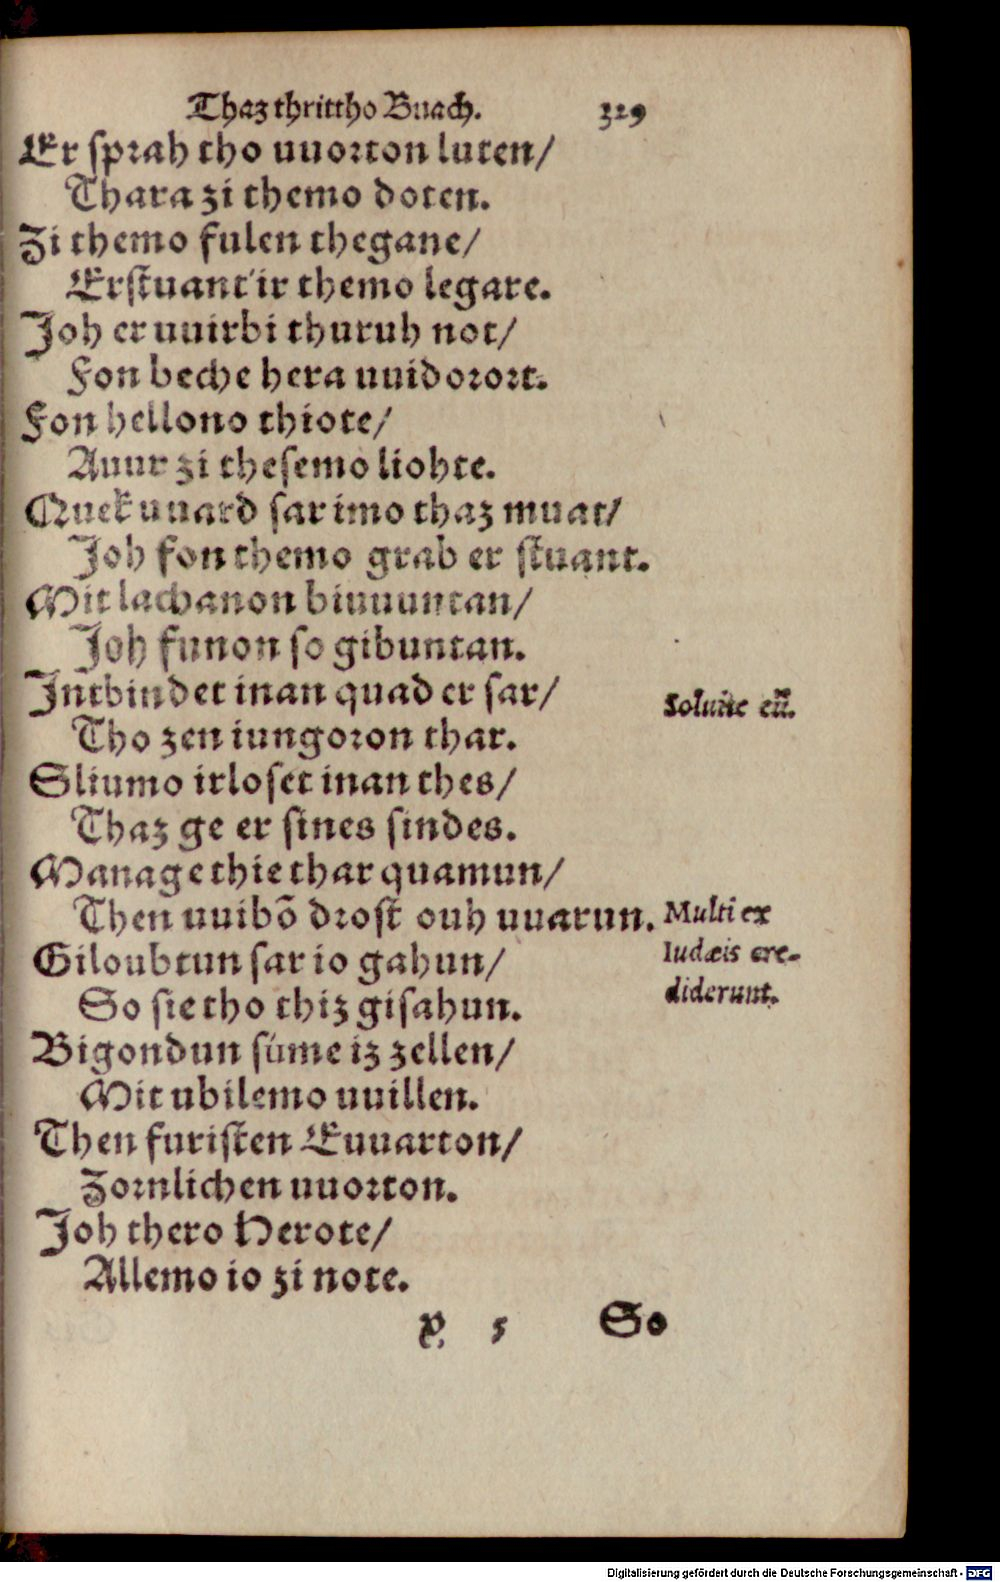 Thaz thrittho Buach. 329
Er sprah tho uuorton luten/
Thara zi themo doten.
Zi themo fulen thegane/
Erstuant ir themo legare.
Joh er uuirbi thuruh not/
Fon beche hera uuidorort.
Fon hellono thiote/
Auur zi thesemo liohte.
Quek uuard sar imo thaz muat/
Joh fon themo grab er stuant.
Mit lachanon biuuuntan/
Joh funon so gibuntan.
Intbindet inan quad er sar/
Soluite eũ.
Tho zen iungoron thar.
Sliumo irloset inan thes/
Thaz ge er sines sindes.
Manage thie thar quamun/
Then uuibō drost ouh uuarun.
Multi ex
Iudæis cre-
diderunt.
Giloubtun sar io gahun/
So sie tho thiz gisahun.
Bigondun sume iz zellen/
Mit ubilemo uuillen.
Then furisten Euuarton/
Zornlichen uuorton.
Joh thero Herote/
Allemo io zi note.
y 5 So
Digitalisierung gefördert durch die Deutsche Forschungsgemeinschaft - DFG